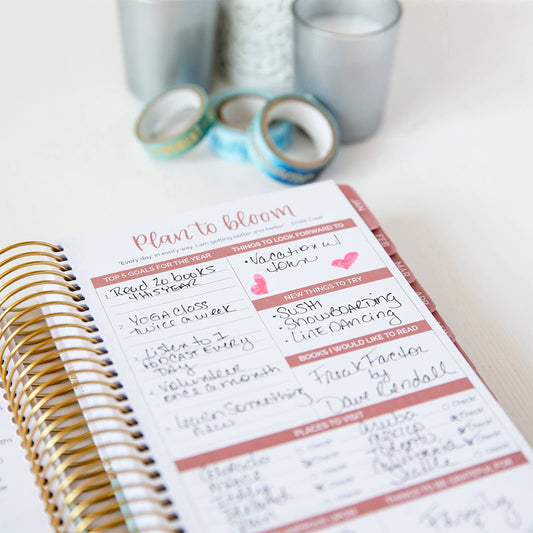 Plan to bloom
"Every day, in every way, I am getting better and better" - Émile Coué
TOP 5 GOALS FOR THE YEAR
Read 20 books
this year
Yoga class
twice a week
Listen to 1
podcast every
day
Volunteer
once a month
Learn something
new
THINGS TO LOOK FORWARD TO
• Vacation w/
John
NEW THINGS TO TRY
• Sushi
• Snowboarding
• Line Dancing
BOOKS I WOULD LIKE TO READ
Freak Factor
by
Dave Rendall
PLACES TO VISIT
Colorado
Aruba
Mexico
Seattle
THINGS TO BE GRATEFUL FOR
Family
JAN
FEB
MAR
APR